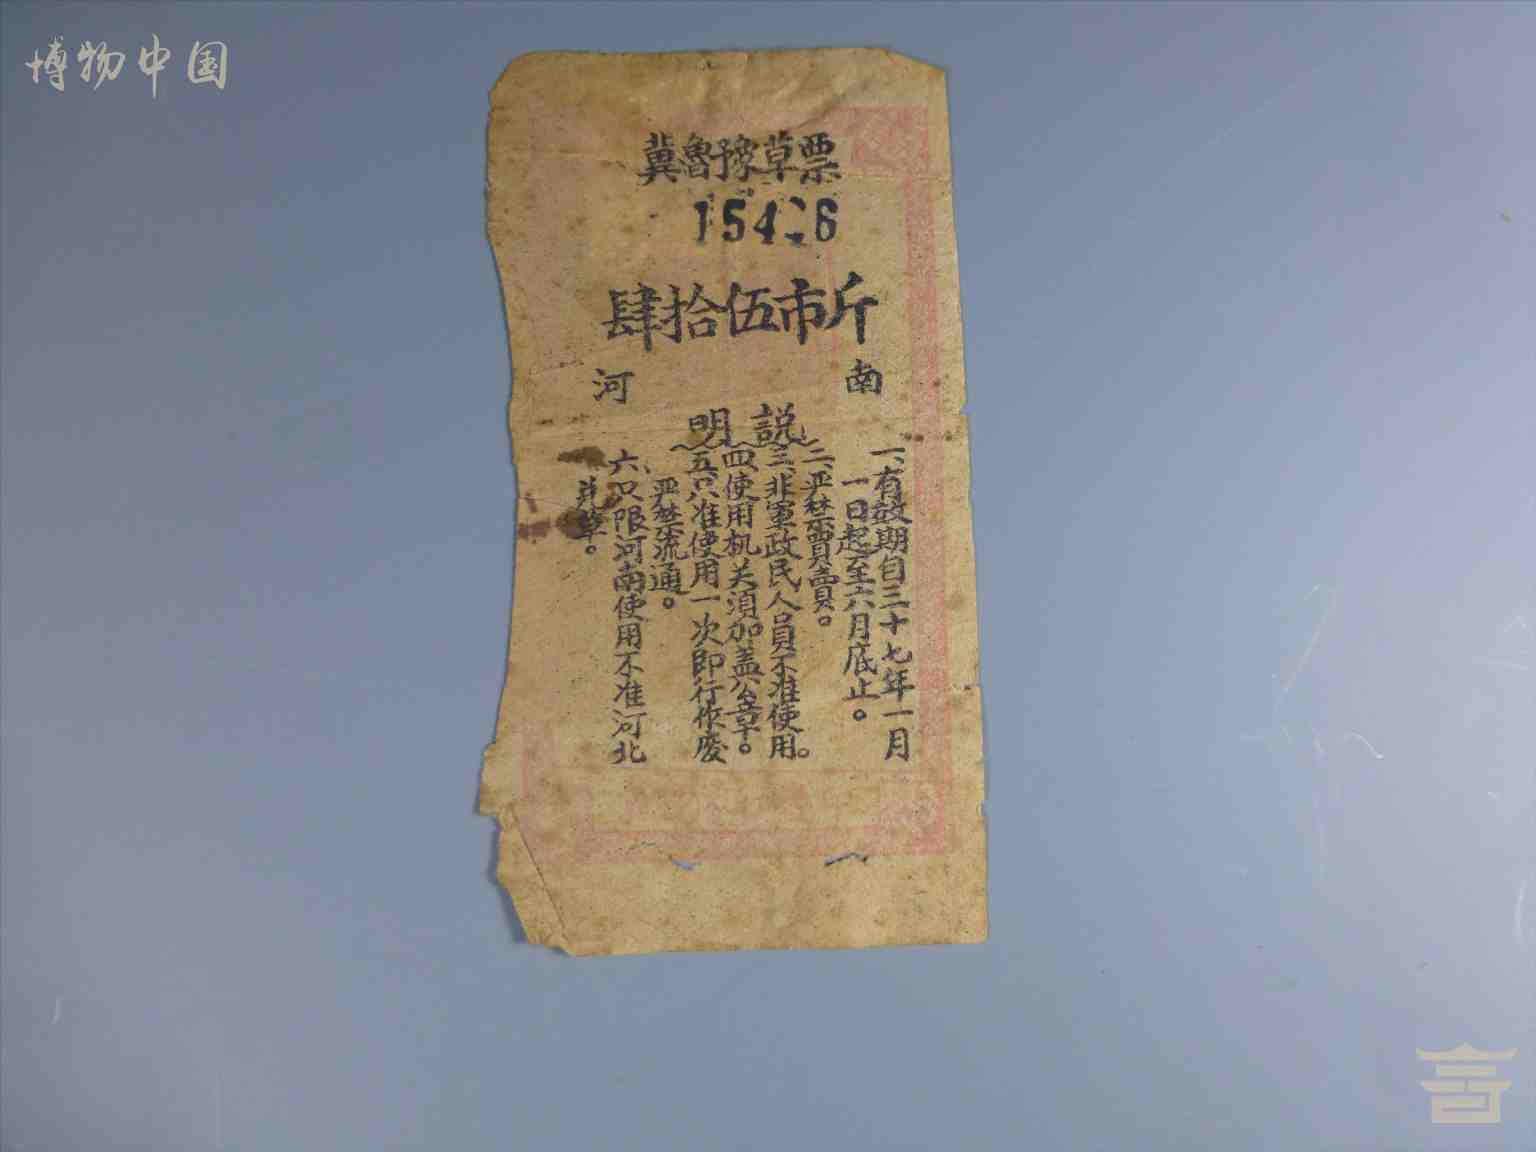 博物中国
冀魯豫草票
肆拾伍市斤
河南
説明
一、有效期自三十七年一月
一日起至六月底止。
二、严禁買賣。
三、非軍政民人員不准使用。
四、使用机关須加盖公章。
五、只准使用一次即行作廢
严禁流通。
六、只限河南使用不准河北
兑草。